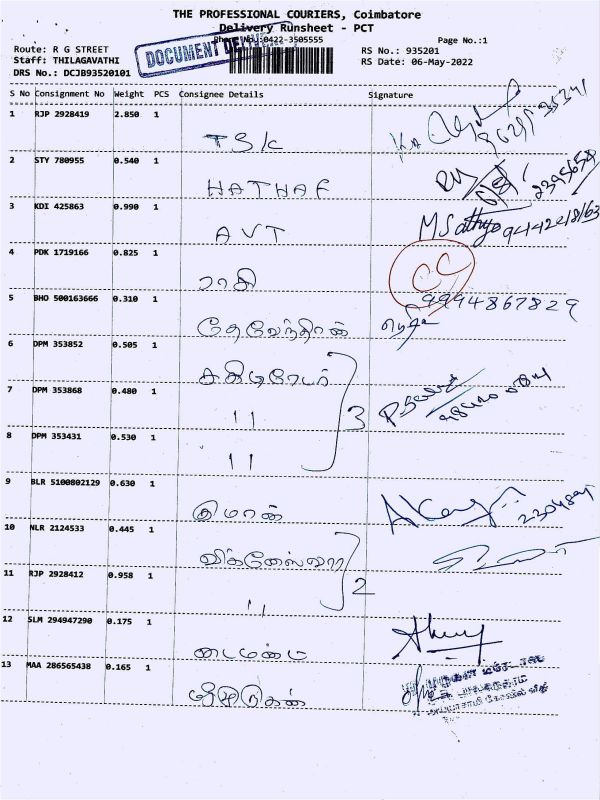 THE PROFESSIONAL COURIERS, Coimbatore
Delivery Runsheet - PCT
Phone No:0422-3505555
Page No.:1
DOCUMENT
Route: R G STREET
RS No.: 935201
Staff: THILAGAVATHI
RS Date: 06-May-2022
DRS No.: DCJB93520101
S No Consignment No Weight PCS Consignee Details Signature
1 RJP 2928419 2.850 1
TSK
2 STY 780955 0.540 1
HATHAF
3 KDI 425863 0.990 1
AVT M Sathya 9442248163
4 PDK 1719166 0.825 1
ராசி CC
5 BHO 500163666 0.310 1 9994867829
தேவேந்திரன்
6 DPM 353852 0.505 1
7 DPM 353868 0.480 1
" 3
8 DPM 353431 0.530 1
"
9 BLR 5100802129 0.630 1
இமான்
10 NLR 2124533 0.445 1
விக்னேஸ்வரா
11 RJP 2928412 0.958 1 2
"
12 SLM 294947290 0.175 1
டைமண்ட்
13 MAA 286565438 0.165 1
ஸ்ரீமுருகன்